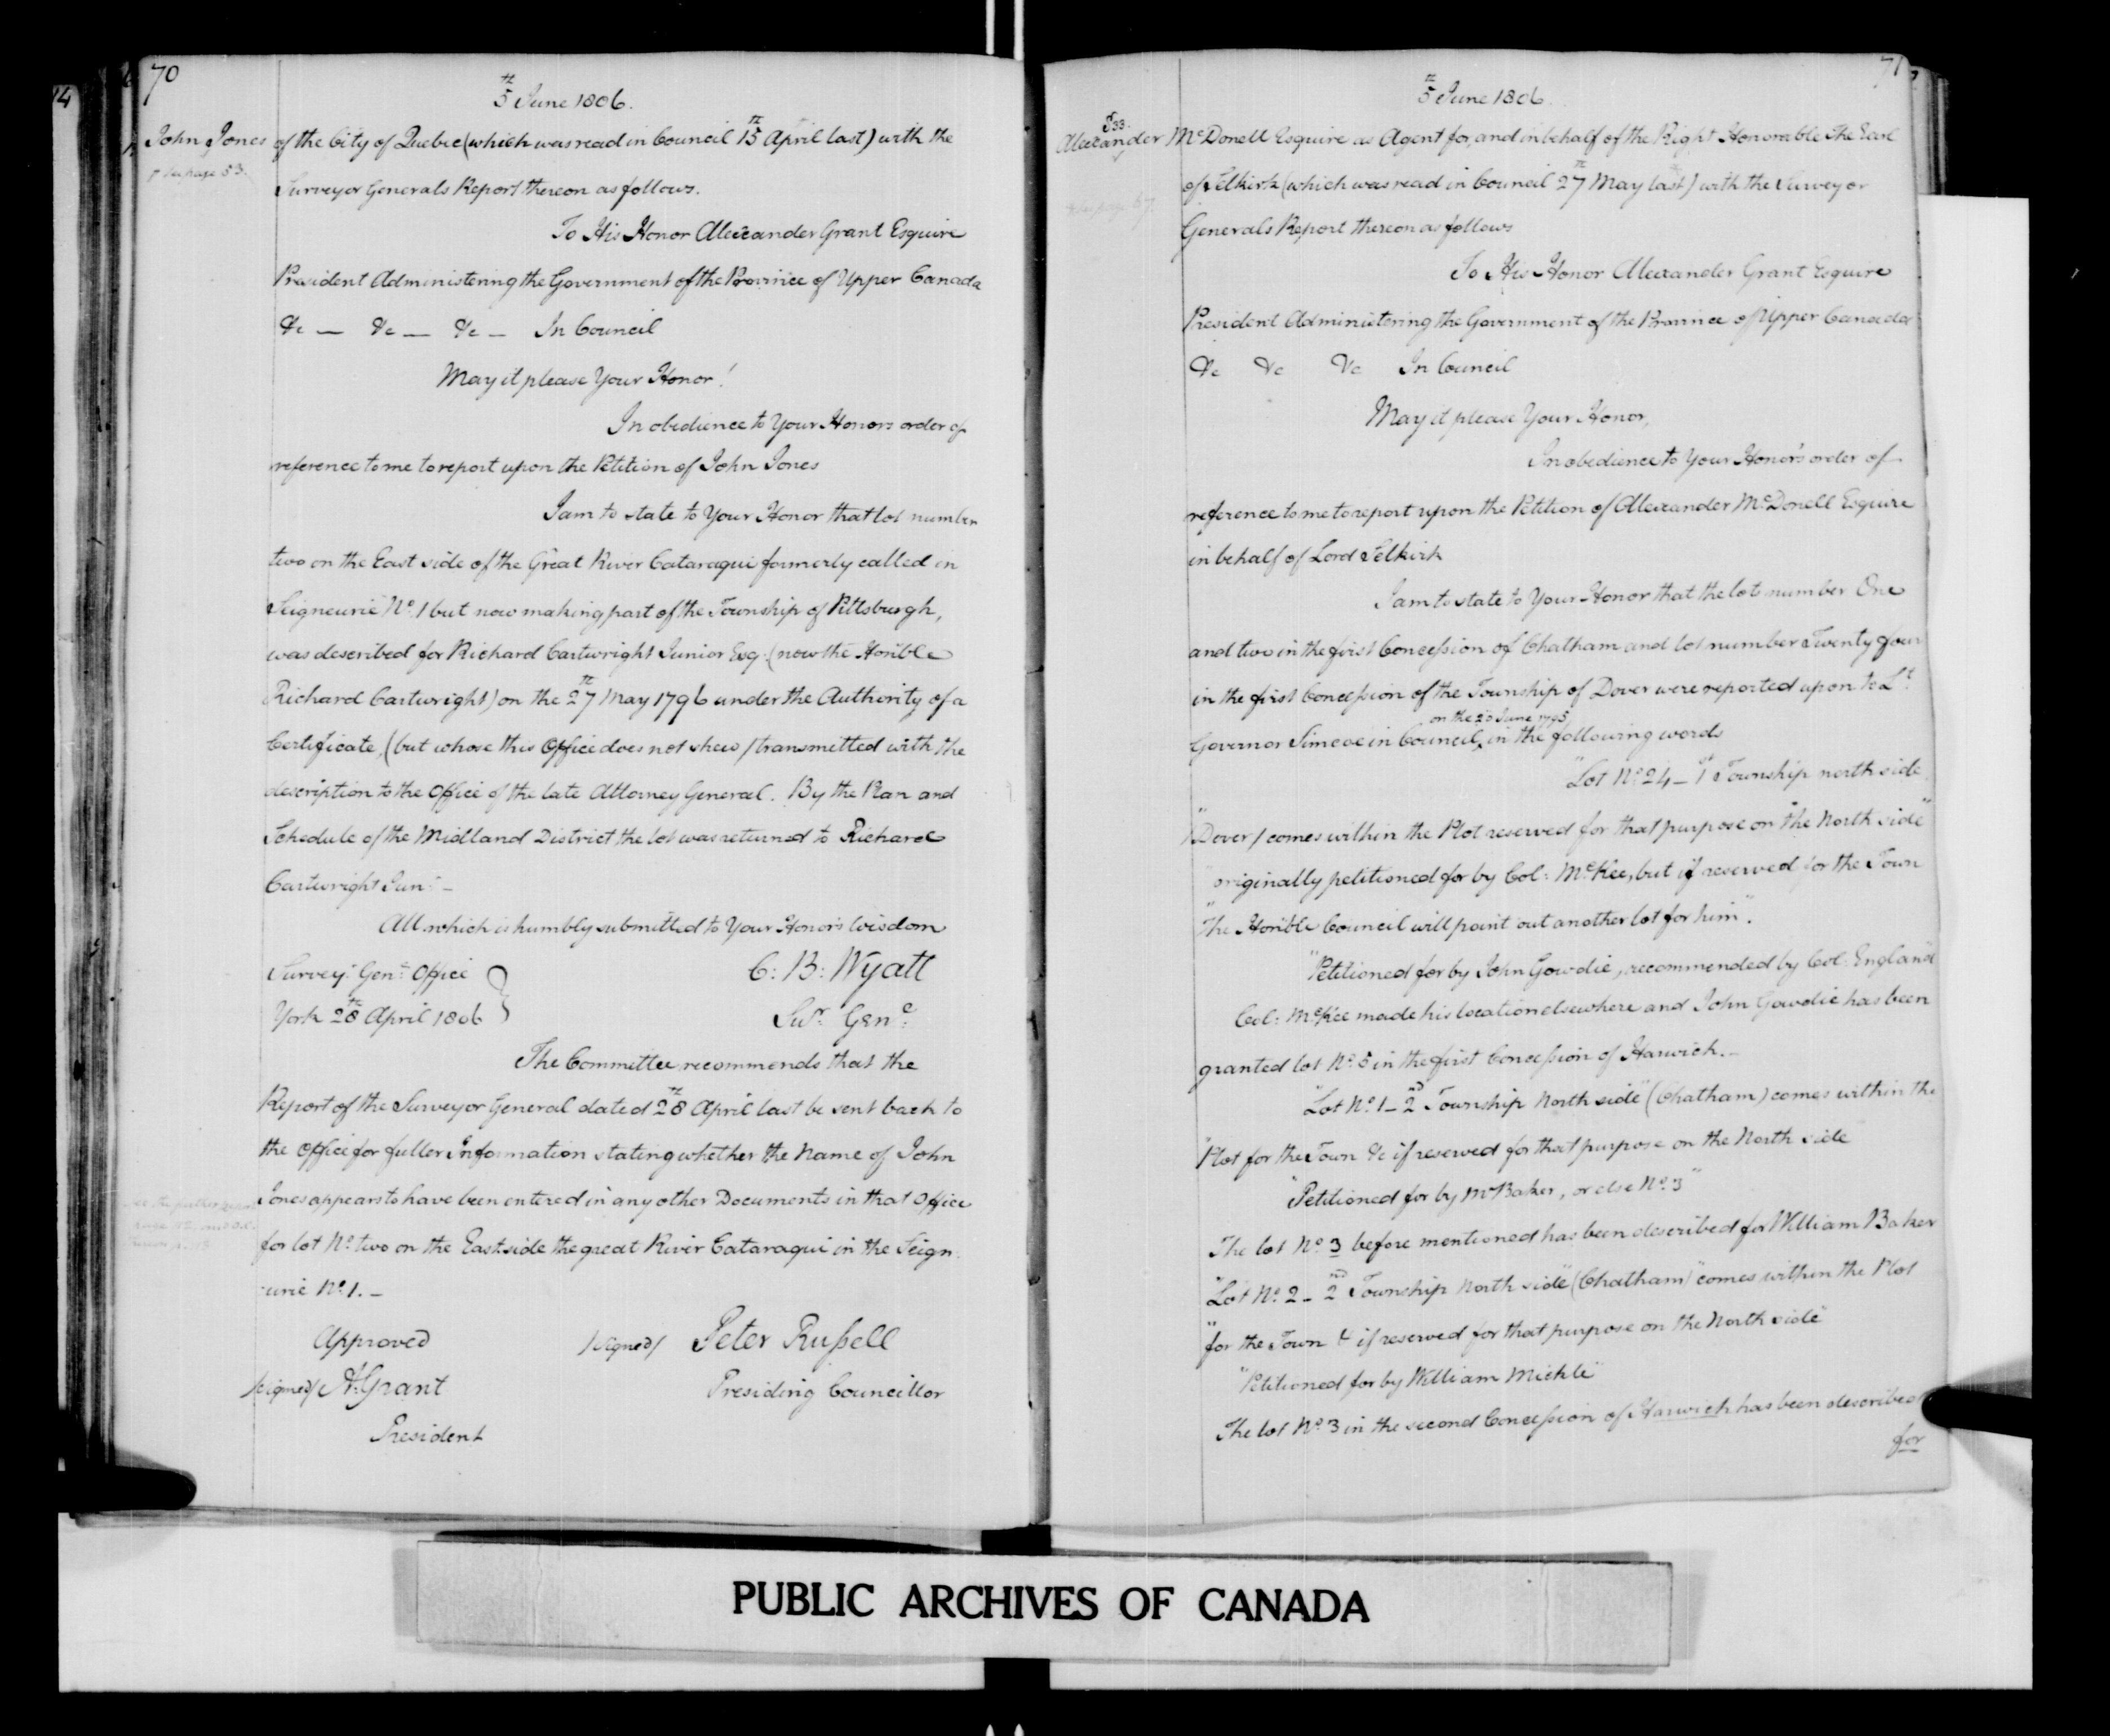 70
5th June 1806.
John Jones of the City of Quebec (which was read in Council 15th April last) with the
see page 53.
Surveyor Generals Report thereon as follows.
To His Honor Alexander Grant Esquire
President Administering the Government of the Province of Upper Canada
&c — &c — &c — In Council
May it please Your Honor!
In obedience to Your Honors order of
reference to me to report upon the Petition of John Jones
I am to state to Your Honor that lot number
two on the East side of the Great River Cataraqui formerly called in
Seigneurie No. 1 but now making part of the Township of Pittsburgh,
was described for Richard Cartwright Junior Esq. (now the Honble
Richard Cartwright) on the 27th May 1796 under the Authority of a
Certificate, (but whose this Office does not shew / transmitted with the
description to the Office of the late Attorney General. By the Plan and
Schedule of the Midland District the lot was returned to Richard
Cartwright Junr. —
All which is humbly submitted to Your Honors wisdom
Survey. Genl. Office
York 28th April 1806
C: B: Wyatt
Sur. Genl.
The Committee recommends that the
Report of the Surveyor General dated 28th April last be sent back to
the Office for fuller Information stating whether the Name of John
Jones appears to have been entered in any other Documents in that Office
for lot No. two on the East side the great River Cataraqui in the Seign
urie No. 1. —
Approved
/signed/ Peter Russell
/signed/ A. Grant
Presiding Councillor
President
71
5th June 1806.
P33.
Alexander McDonell Esquire as Agent for, and in behalf of the Right Honorable The Earl
of Selkirk (which was read in Council 27th May last) with the Surveyor
see page 67.
Generals Report thereon as follows
To His Honor Alexander Grant Esquire
President Administering the Government of the Province of Upper Canada
&c &c &c In Council
May it please Your Honor,
In obedience to Your Honor's order of
reference to me to report upon the Petition of Alexander McDonell Esquire
in behalf of Lord Selkirk
I am to state to Your Honor that the lots number One
and two in the first Concession of Chatham and lot number Twenty four
in the first Concession of the Township of Dover were reported upon to Lt.
on the 20 June 1795
Governor Simcoe in Council, in the following words
"Lot No. 24 — 1st Township north side
"/Dover/ comes within the Plot reserved for that purpose on the North side"
"originally petitioned for by Col: McKee, but if reserved for the Town
"The Honble Council will point out another lot for him".
"Petitioned for by John Gowdie, recommended by Col. England"
Col: McKee made his location elsewhere and John Gowdie has been
granted lot No. 5 in the first Concession of Harwich. —
"Lot No. 1 — 2nd Township North side" (Chatham) comes within the
"Plot for the Town &c if reserved for that purpose on the North side
"Petitioned for by Mr Baker, or else No. 3"
The lot No. 3 before mentioned has been described for William Baker
"Lot No. 2 — 2nd Township North side" (Chatham) "comes within the Plot
"for the Town & if reserved for that purpose on the North side"
"Petitioned for by William Mickle"
The lot No. 3 in the second Concession of Harwich has been described
for
PUBLIC ARCHIVES OF CANADA